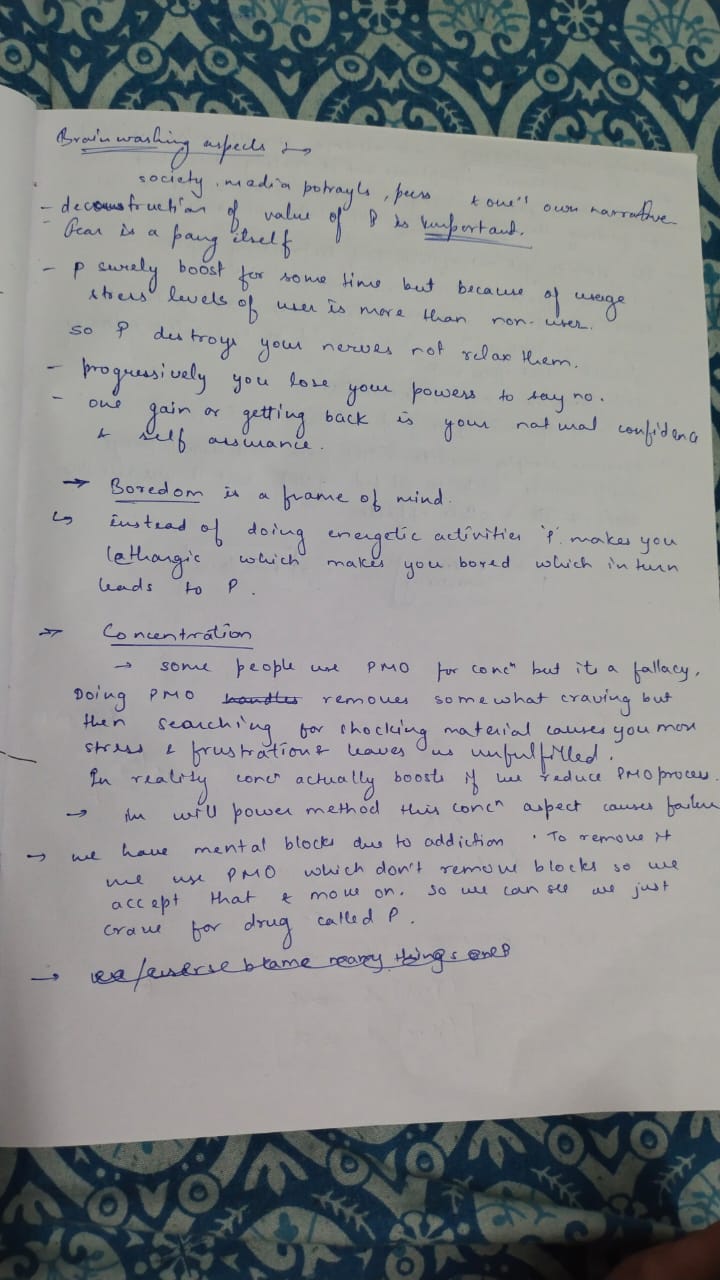 Brainwashing aspects ↳
society, media potrayls, peers & one's own narrative
- deconstruction of value of P is important.
- Fear is a pang itself
- P surely boost for some time but because of usage
stress levels of user is more than non-user.
so P destroys your nerves not relax them.
- progressively you lose your powers to say no.
- one gain or getting back is your natural confidence
& self assurance.
→ Boredom is a frame of mind.
↳ instead of doing energetic activities 'P' makes you
lethargic which makes you bored which in turn
leads to P.
→ Concentration
→ some people use PMO for concn but its a fallacy.
Doing PMO handles removes somewhat craving but
then searching for shocking material causes you more
stress & frustration & leaves us unfulfilled.
In reality concn actually boosts if we reduce PMO process.
→ In will power method this concn aspect causes failure
→ we have mental blocks due to addiction. To remove it
we use PMO which don't remove blocks so we
accept that & move on. So we can see we just
crave for drug called P.
→ blame many things on P